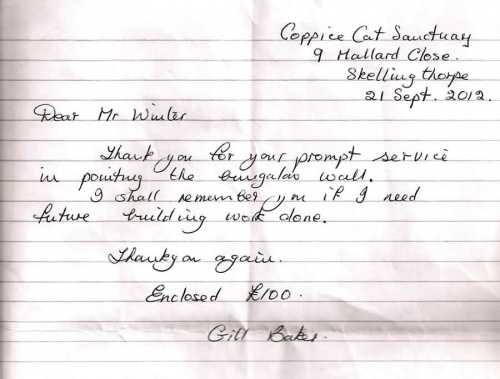 Coppice Cat Sanctuary
9 Mallard Close.
Skellingthorpe
21 Sept. 2012.
Dear Mr Winter
Thank you for your prompt service
in pointing the bungalow wall.
I shall remember you if I need
future building work done.
Thankyou again.
Enclosed £100.
Gill Baker.